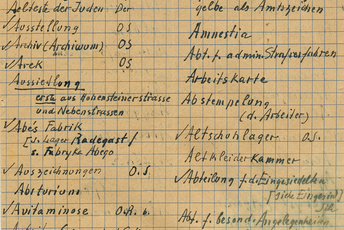 Aelteste der Juden Der
✓Ausstellung OS
✓Archiv (Archiwum) OS
✓Arek OS
Aussiedlung
erste aus Hohensteinerstrasse
und Nebenstrassen
✓Abes Fabrik
[s. Lager Radegast/
s. Fabryka Abego
✓Auszeichnungen O.S.
Abiturium
✓Avitaminose
gelbe als Amtszeichen
Amnestia
Abt. f. admin. Strafverfahren
Arbeitskarte
Abstempelung
(d. Arbeiter)
✓Altschuhlager O.S.
Altkleiderkammer
✓Abteilung f. d. Eingesiedelten
[siehe Eingesied]
Abt. f. besond. Angelegenheiten